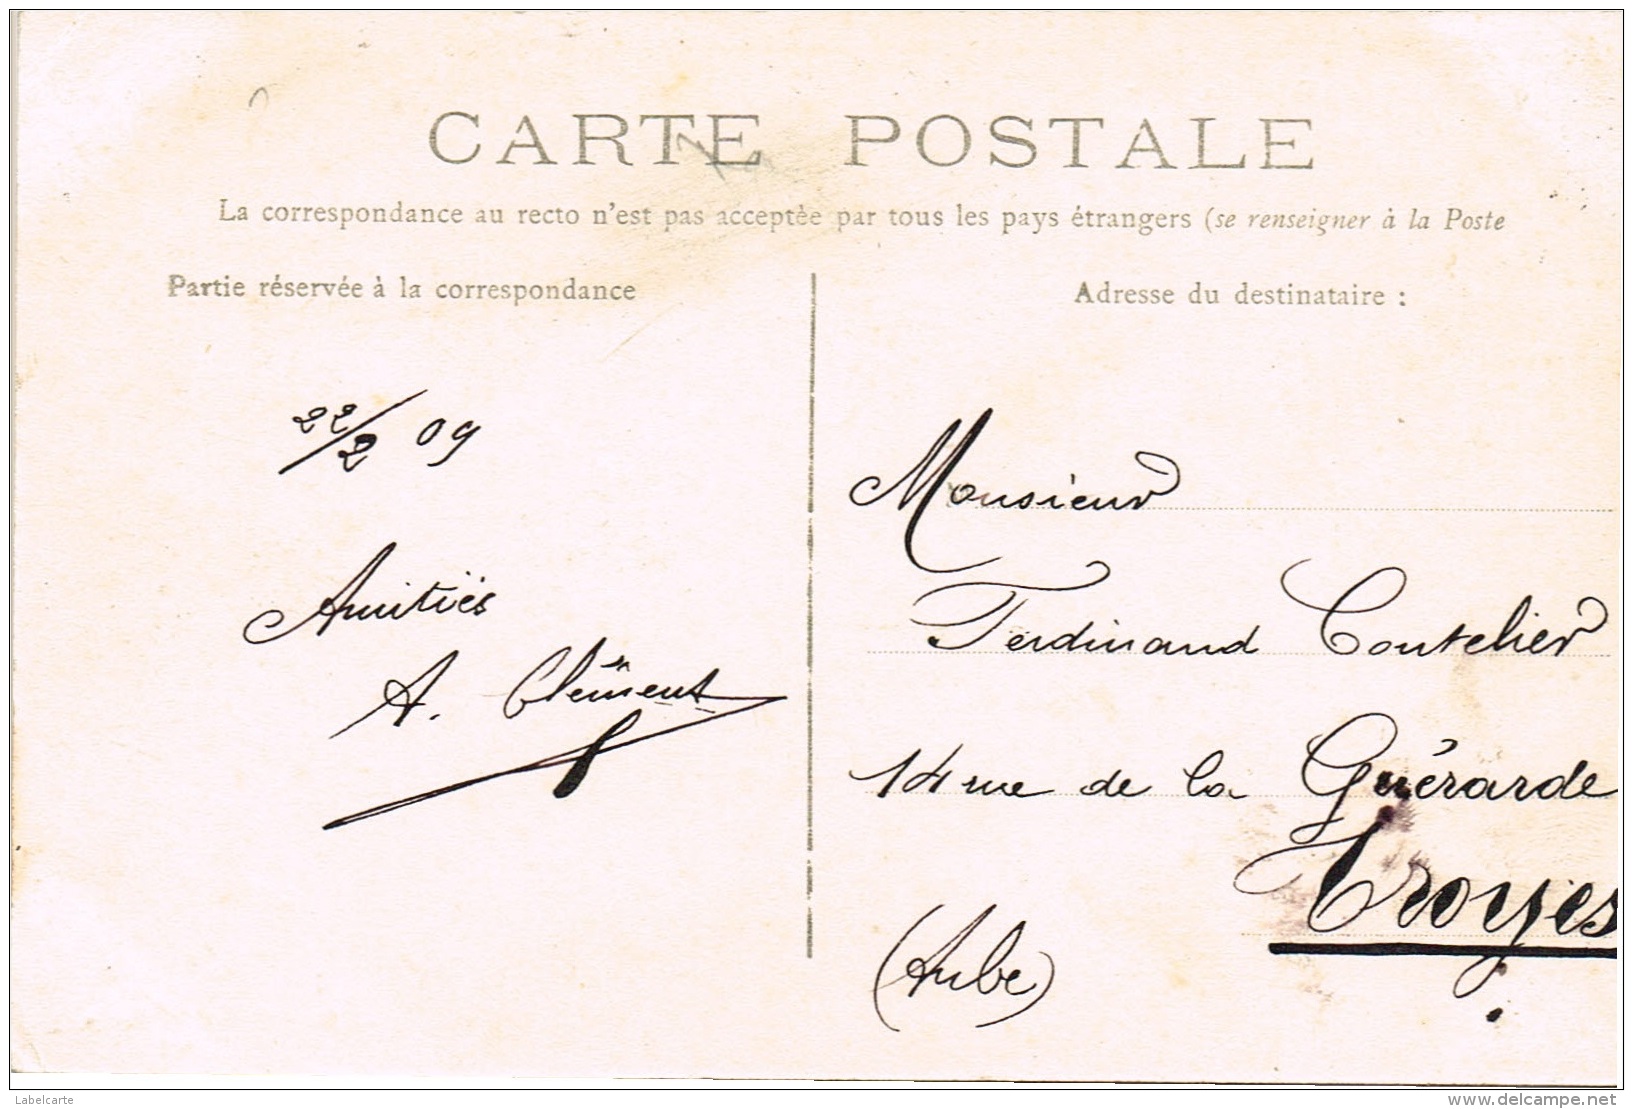 CARTE POSTALE
La correspondance au recto n'est pas acceptée par tous les pays étrangers (se renseigner à la Poste
Partie réservée à la correspondance
22/2 09
Amitiés
A. Clément
Adresse du destinataire :
Monsieur
Ferdinand Coutelier
14 rue de la Guérarde
Troyes
(Aube)
Labelcarte
www.delcampe.net